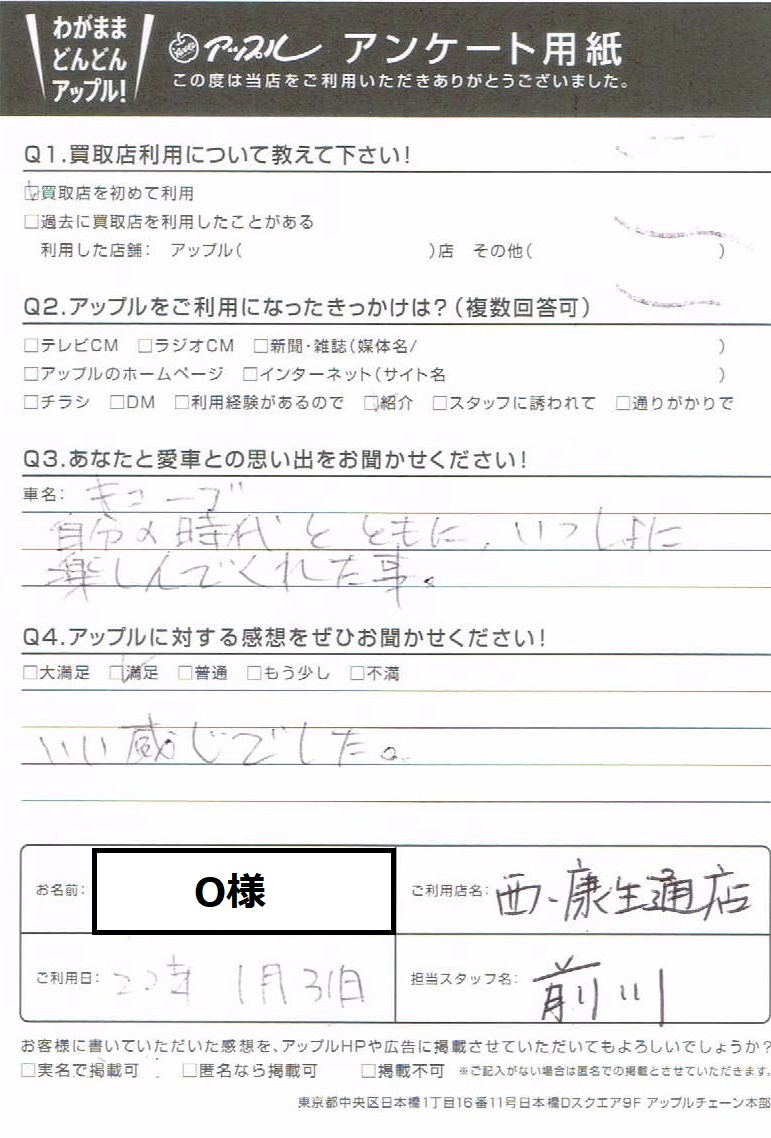 わがまま
どんどん
アップル!
アップル アンケート用紙
この度は当店をご利用いただきありがとうございました。
Q1.買取店利用について教えて下さい!
☑買取店を初めて利用
□過去に買取店を利用したことがある
利用した店舗: アップル( )店 その他( )
Q2.アップルをご利用になったきっかけは?(複数回答可)
□テレビCM □ラジオCM □新聞・雑誌(媒体名/ )
□アップルのホームページ □インターネット(サイト名 )
□チラシ □DM □利用経験があるので ☑紹介 □スタッフに誘われて □通りがかりで
Q3.あなたと愛車との思い出をお聞かせください!
車名: キューブ
自分の時代とともに、いっしょに
楽しんでくれた事。
Q4.アップルに対する感想をぜひお聞かせください!
□大満足 ☑満足 □普通 □もう少し □不満
いい感じでした。
お名前: O様 ご利用店名: 西、康生通店
ご利用日: 22年 1月31日 担当スタッフ名: 前川
お客様に書いていただいた感想を、アップルHPや広告に掲載させていただいてもよろしいでしょうか?
□実名で掲載可 □匿名なら掲載可 □掲載不可 ※ご記入がない場合は匿名での掲載とさせていただきます。
東京都中央区日本橋1丁目16番11号日本橋Dスクエア9F アップルチェーン本部